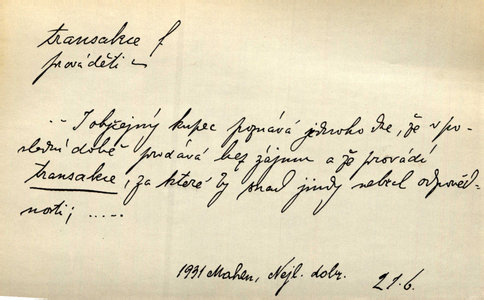 transakce f
prováděti
... I obyčejný kupec poznává jednoho dne, že v po-
slední době prodává bez zájmu a že provádí
transakce, za které by snad jindy nebral odpověd-
nosti; .....
1931 Mahen, Nejl. dobr. 21.6.